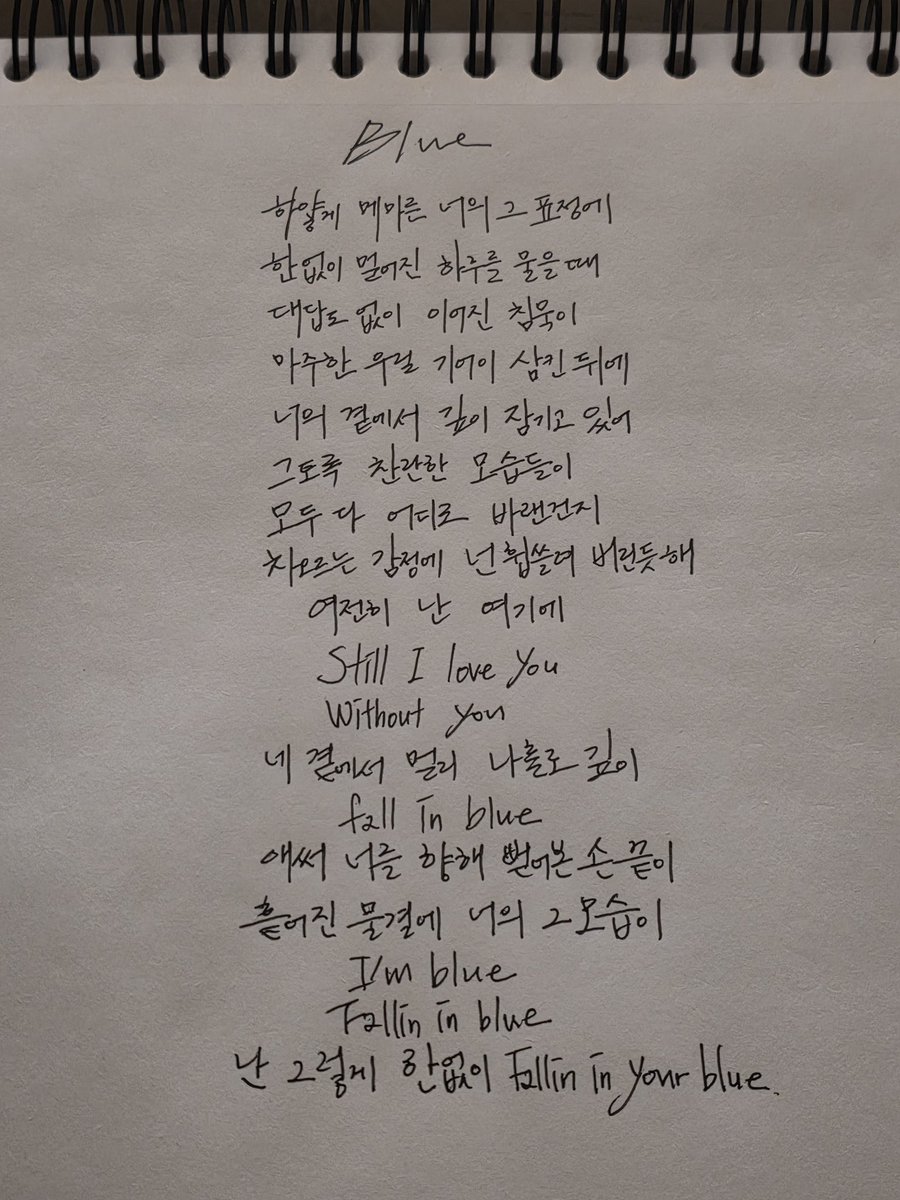 Blue
하얗게 메마른 너의 그 표정에
한없이 멀어진 하루를 물을때
대답도 없이 이어진 침묵이
마주한 우릴 기어이 삼킨 뒤에
너의 곁에서 깊이 잠기고 있어
그토록 찬란한 모습들이
모두 다 어디로 바랜건지
차오르는 감정에 넌 휩쓸려 버린듯해
여전히 난 여기에
Still I love you
Without you
네 곁에서 멀리 나홀로 깊이
fall in blue
애써 너를 향해 뻗어본 손 끝이
흩어진 물결에 너의 그 모습이
I'm blue
Fallin in blue
난 그렇게 한없이 Fallin in your blue.